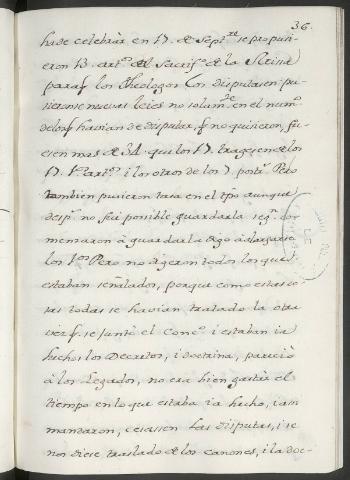 36.
hade celebrar en 17. de Septre. se propusi-
eron 13. arts. del Sacrifo. de la Missa
para q los Theologos los disputasen pu-
sieronse nuevas leies no solamte. en el numo.
de los q havian de disputar, q no quisieron, fu-
esen mas de 34. que los 17. tragesen de los
17. 1os. arts. i los otros de los 7. posts. Pero
tambien pusieron tasa en el tpo. aunque
desps. no fué posible guardarla
menzaron à guardarla digo à alargarse
los 1os. Pero no digeron todos los que
estaban señalados, porque como estas co-
sas todas se havian tratado la otra
vez q. se juntó el Conco. i estaban ia
hechos los Decretos, i doctrina, pareciò
à los Legados, no era bien gastar el
tiempo en lo que estaba ia hecho, i asi
mandaron, cesassen las disputas, i se
nos diese traslado de los canones, i la doc-